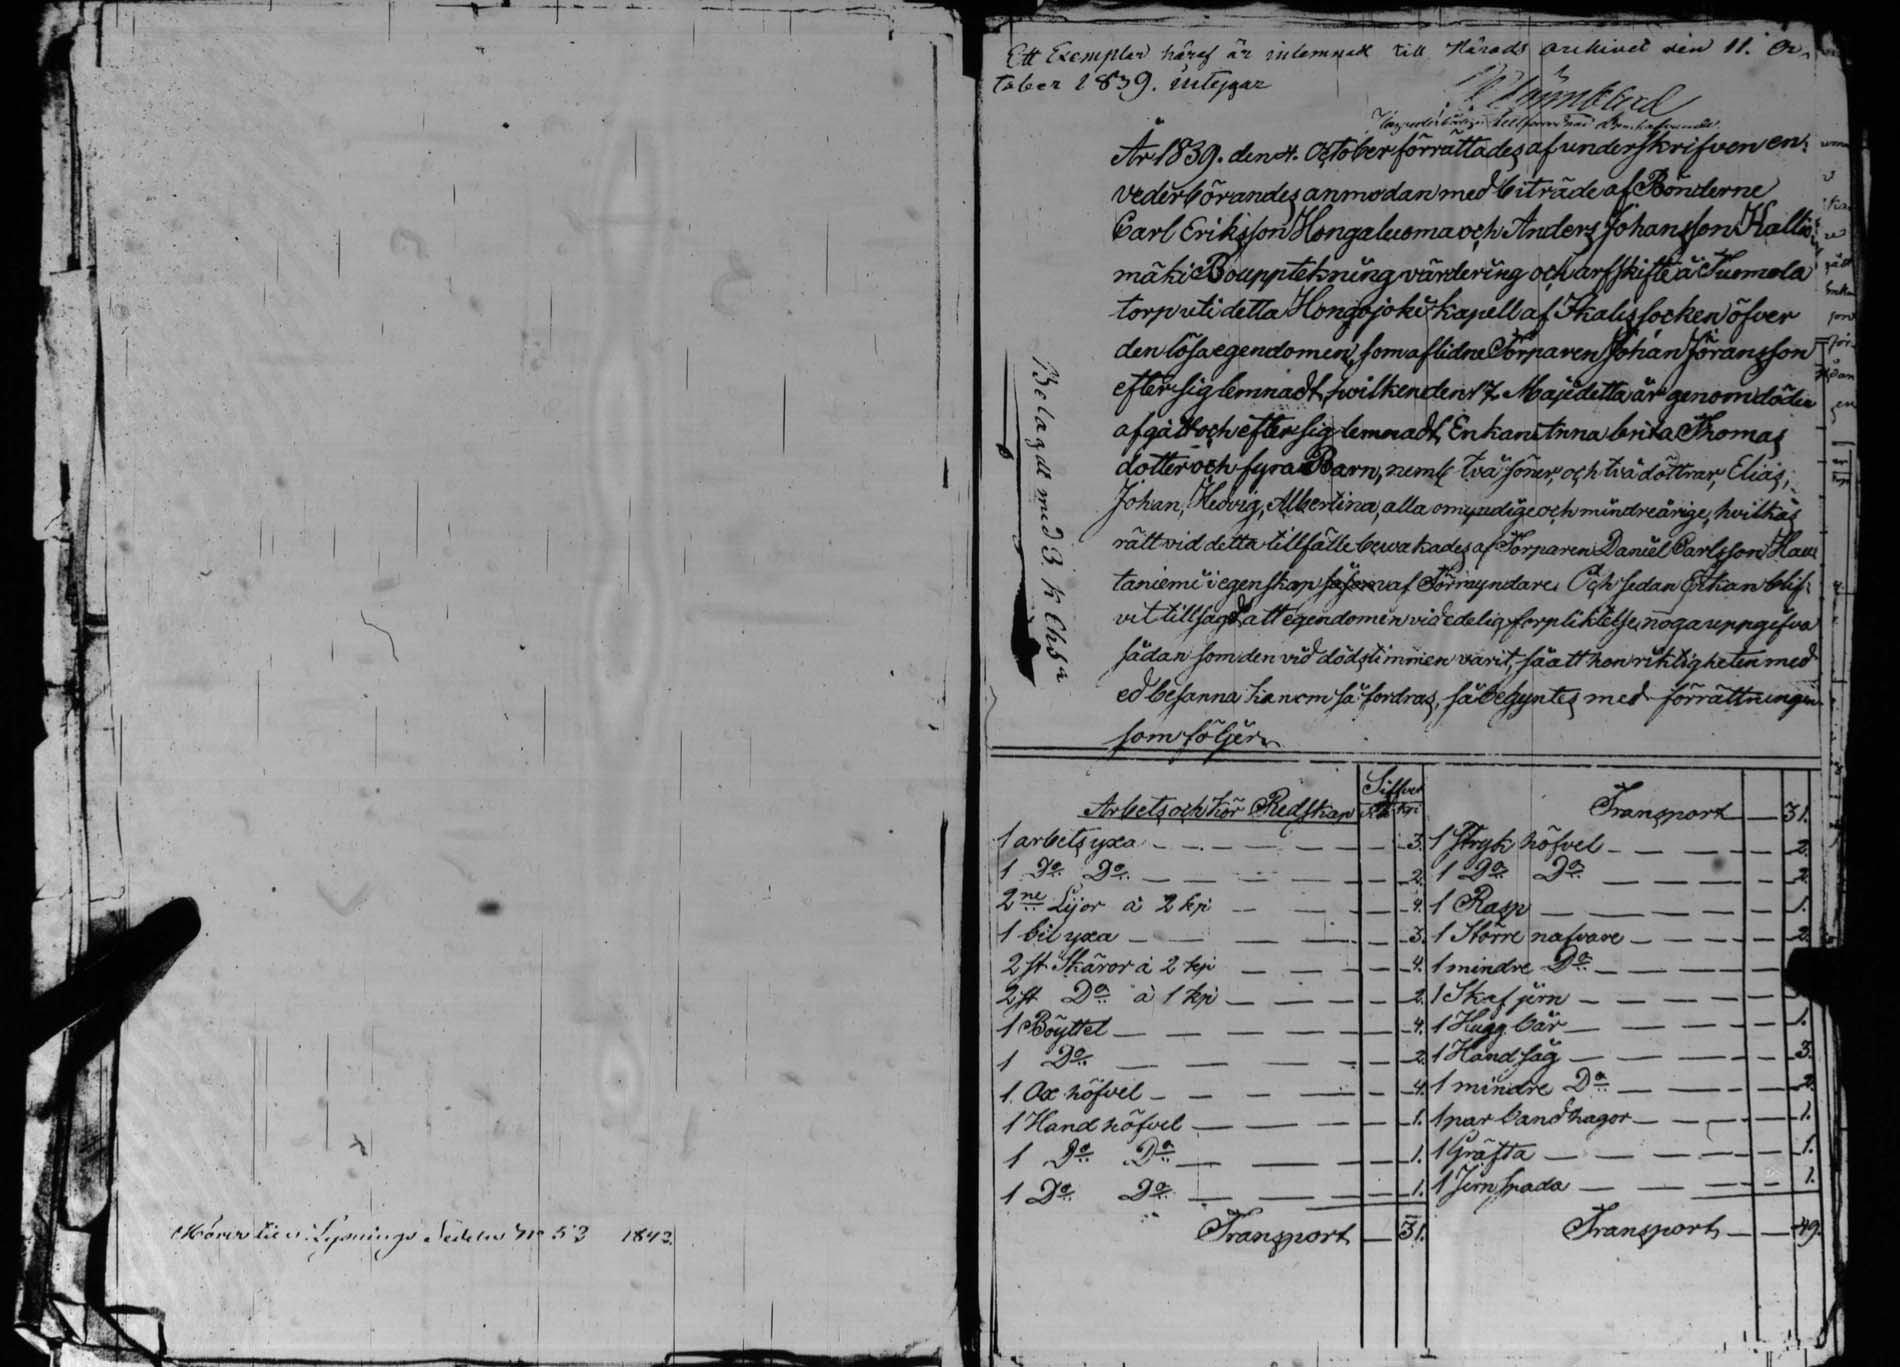 Hörer till Lysnings Sedeln No 53 1842.
Ett Exemplar häraf är inlemnadt till Härads archivet den 11. Oc-
tober 1839. intygar
År 1839. den 4. October förrättades af underskrifven en-
vederbörandes anmodan med biträde af Bönderne
Carl Eriksson Hongaluoma och Anders Johansson Kallio
mäki Bouppteckning värdering och arfskifte å Tuomola
torp uti detta Hongojoki kapell af Ikalis socken öfver
den lösa egendomen, som aflidne Torparen Johan Jöransson
efter sig lemnadt, hvilken den 17 Maji detta år genom döden
afgått och efter sig lemnadt, Enkan Anna brita Thomas
dotter och fyra Barn, neml: två söner, och två döttrar, Elias,
Johan, Hedvig, Albertina, alla omyndige och mindreårige, hvilkas
rätt vid detta tillfälle bevakades af Torparen Daniel Carlsson Hau
taniemi i egenskap af Förmyndare. Och sedan Enkan blif-
vit tillsagd att egendomen vid edelig förpliktelse, noga uppgifva
sådan som den vid dödstimmen varit, så att hon riktigheten med
ed besanna kan om så fordras, så begyntes med förrättningen
som följer.
Belagdt med 3 k Ch: S:r
Silfver
Arbets och Kör Redskap Rub kpi
1 arbets yxa 3.
1 Do Do 2.
2ne Lijor à 2 kpi 4.
1 bil yxa 3.
2 st Skäror à 2 kpi 4.
2 st Do à 1 kpi 2.
1 Böyttel 4.
1 Do 2.
1 Ox höfvel 4.
1 Hand höfvel 1.
1 Do Do 1.
1 Do Do 1.
Transport 31.
Transport 31.
1 Stryk höfvel 2.
1 Do Do 2.
1 Rasp 1.
1 Större nafvare 2.
1 mindre Do
1 Skaf jern
1 Hugg bår 1.
1 Hand såg 3.
1 mindre Do 2.
1 par band hagor 1.
1 Gräfta 1.
1 Jern spada 1.
Transport 49.